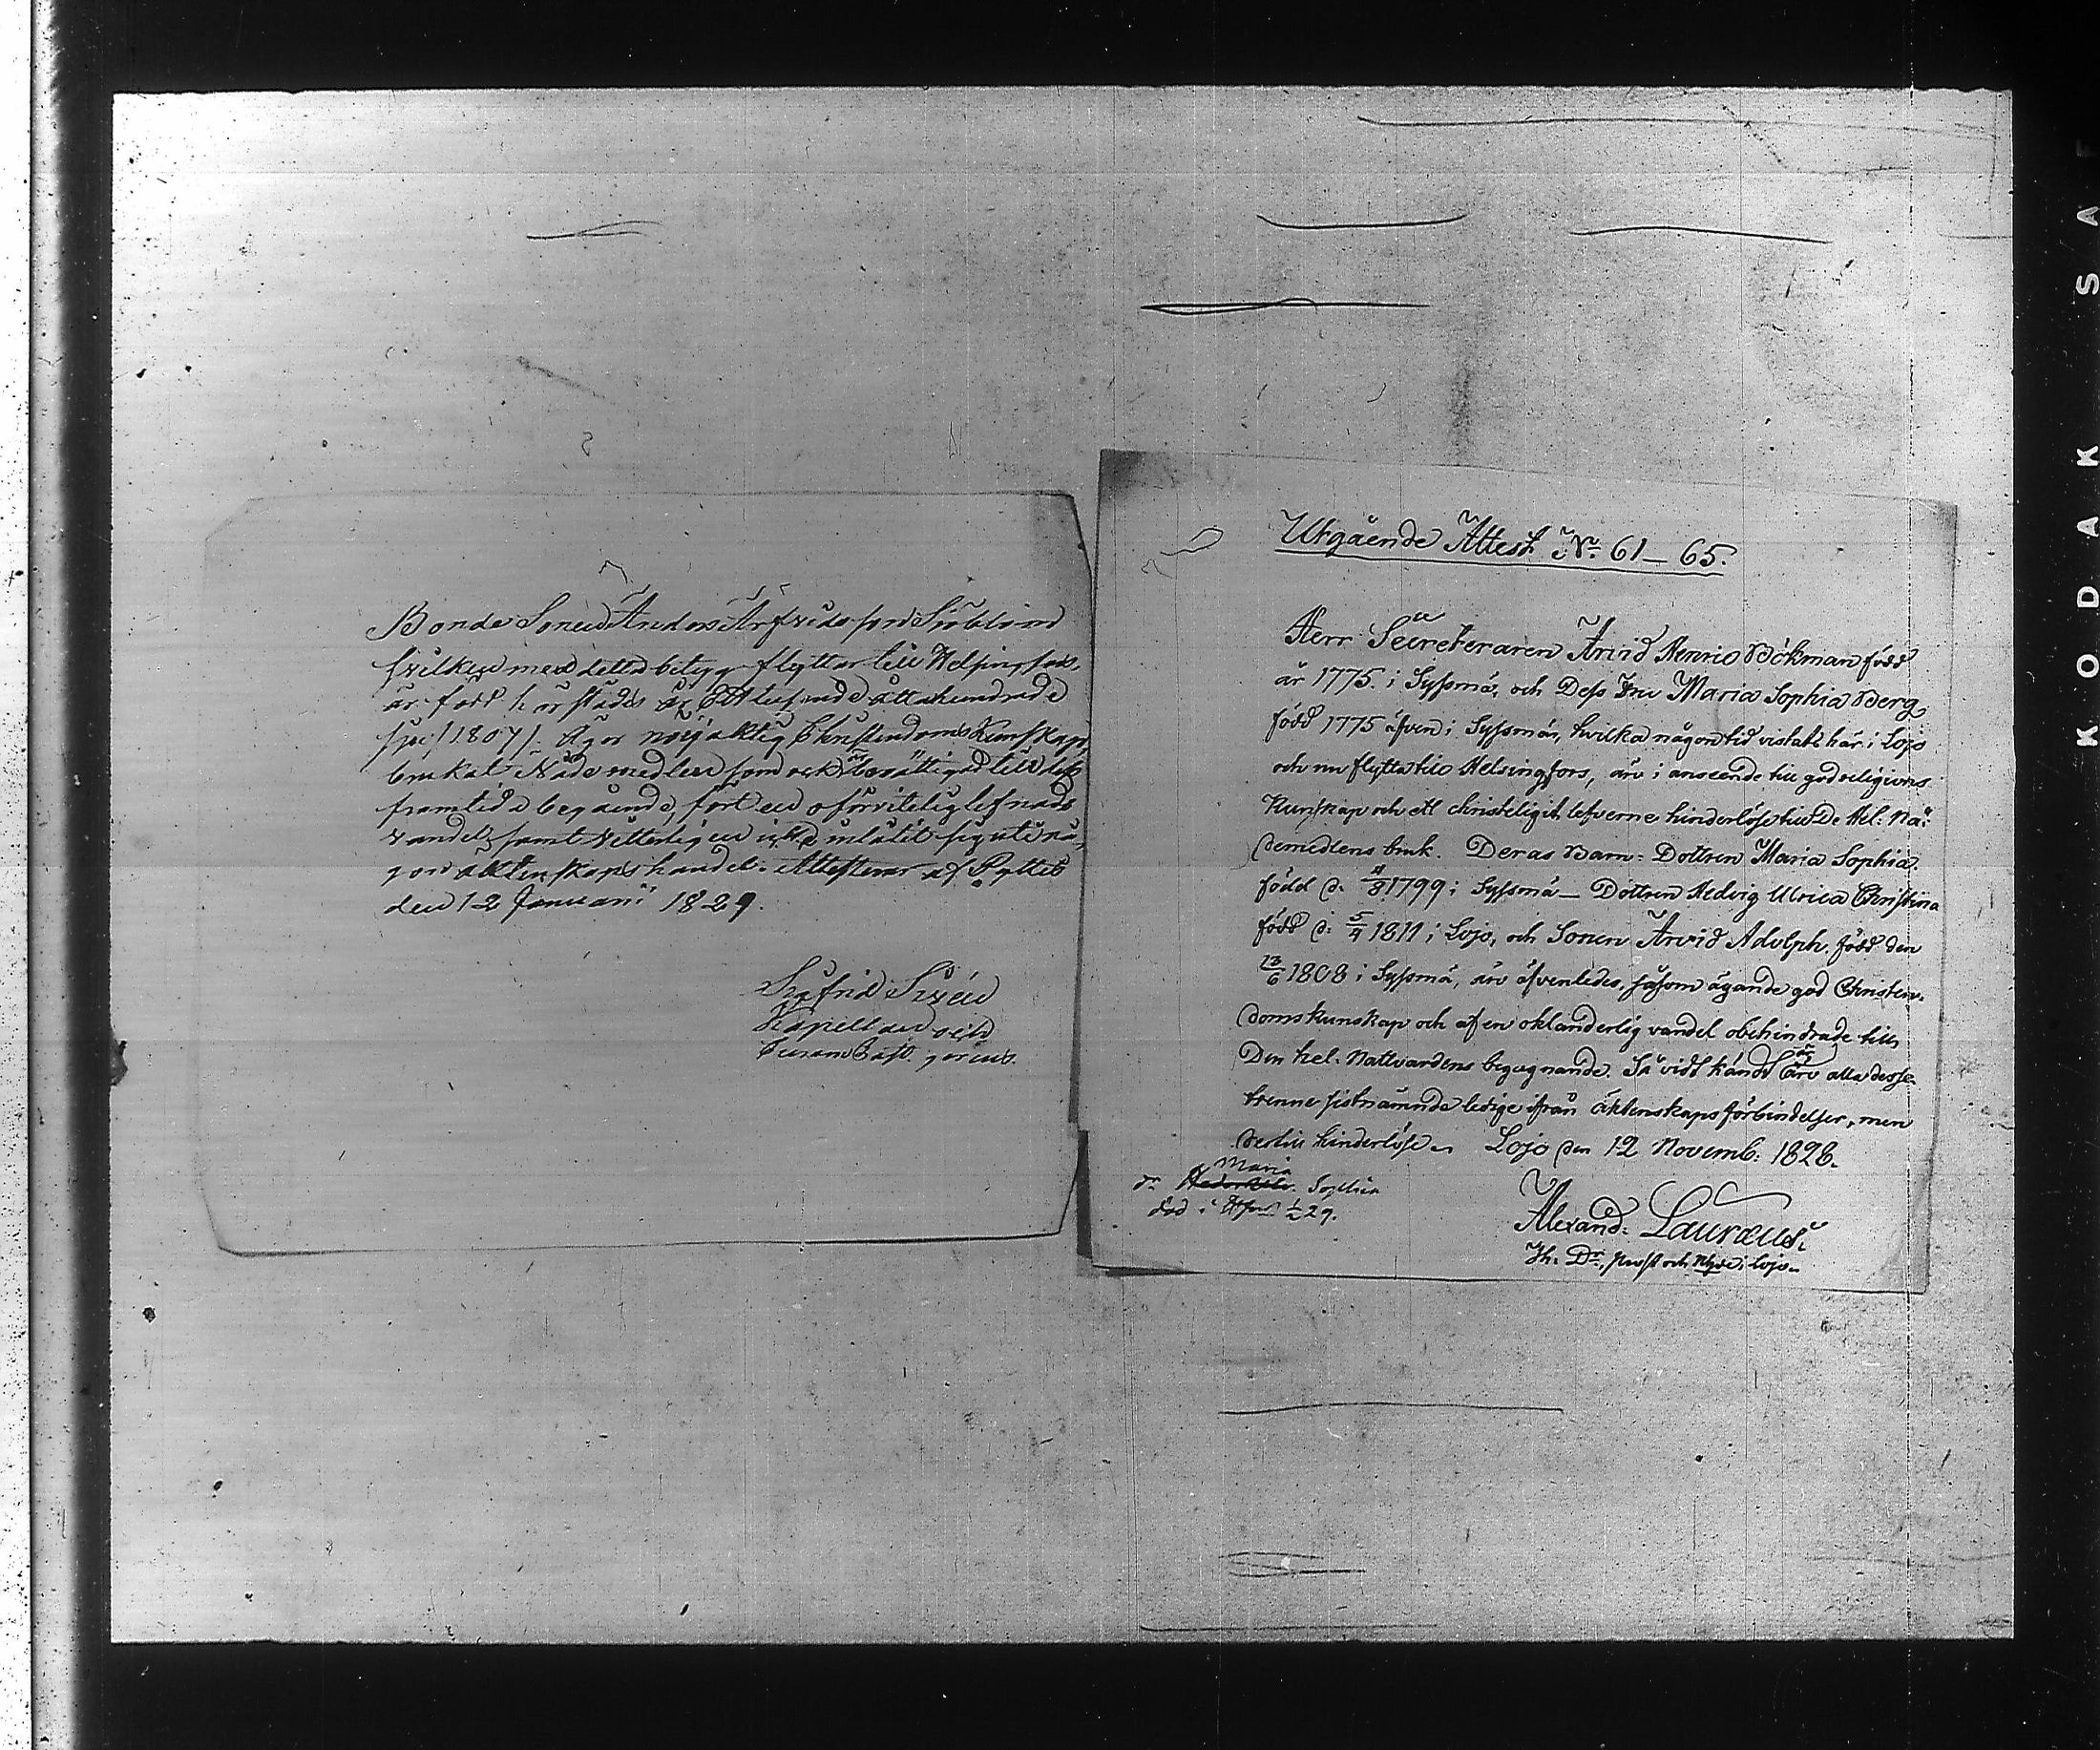 Bonde Sonen Anders Arfvidsson Sjöblom
hvilken med detta betyg flyttar till Helsingfors,
är född härstädes år Ett tusende åttahundrade
sju /:1807/. Äger nöjaktig Christendoms Kunskap,
brukat Nådemedlen som ock är berättigad till dess
framtida begående, fört en oförvitelig lefnads
vandel, samt vetterligen icke inlåtit sig uti nå-
gon äktenskaps handel. Attesterar af Pyttis
den 12 Januari 1829.
Sigfrid Sirén
Kapellan och
Utgående Attest No 61–65.
Herr Secreteraren Arvid Henric Bökman född
år 1775. i Syssmä, och Dess Fru Maria Sophia Berg
född 1775 äfven i Syssmä, hvilka någon tid vistats här i Lojo
och nu flytta till Helsingfors, äro i anseende till god religions
Kunskap och ett christeligit lefverne hinderlöse till De Hel: Nå-
demedlens bruk. Deras Barn: Dottren Maria Sophia.
född d. /8 1799 i Syssmä – Dottren Hedvig Ulrica Christina
född d: 5/4 1811 i Lojo, och Sonen Arvid Adolph född den
13/6 1808 i Syssmä, äro äfvenledes, såsom ägande god Christen-
doms kunskap och af en oklanderlig vandel obehindrade till
Den hel. Nattvardens begagnande. Så vidt kändt är äro alla desse
trenne sistnämnde ledige ifrån äktenskaps förbindelser, men
dertill hinderlöse. Lojo den 12 Novemb: 1828.
Maria
dr Sophia
död i 1/2 29.
Alexand: Lauræus.
Th. Dr, prost och Khde i Lojo.
KODAK SAF